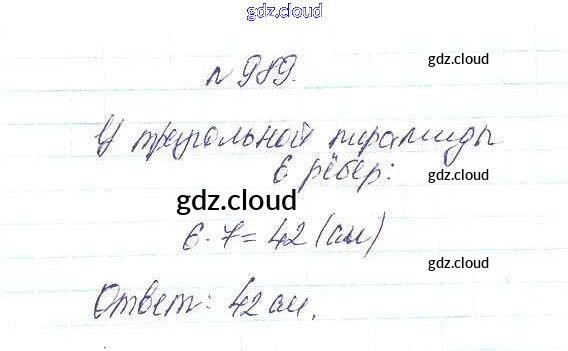 gdz.cloud
gdz.cloud
n 989.
У треугольной пирамиды
6 рёбер:
gdz.cloud
gdz.cloud
6 · 7 = 42 (см)
gdz.cloud
Ответ: 42 см.
gdz.cloud